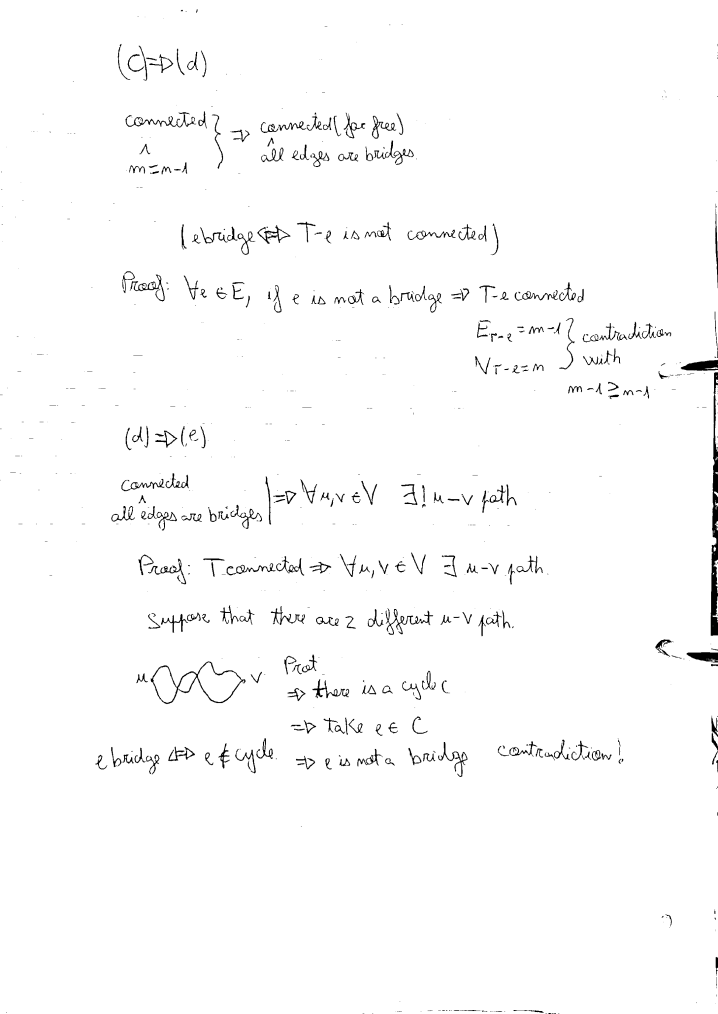 (c) ⇒ (d)
connected
∧
m = n-1
} ⇒ connected (for free)
∧
all edges are bridges.
(e bridge ⇔ T-e is not connected)
Proof: ∀e ∈ E, if e is not a bridge ⇒ T-e connected
E_{T-e} = m-1 } contradiction
V_{T-e} = n } with
m-1 ≥ n-1
(d) ⇒ (e)
connected
∧
all edges are bridges | ⇒ ∀u,v ∈ V ∃! u-v path
Proof: T connected ⇒ ∀u,v ∈ V ∃ u-v path.
Suppose that there are 2 different u-v path.
u v Prot
⇒ there is a cycle C
⇒ take e ∈ C
e bridge ⇔ e ∉ cycle. ⇒ e is not a bridge contradiction!